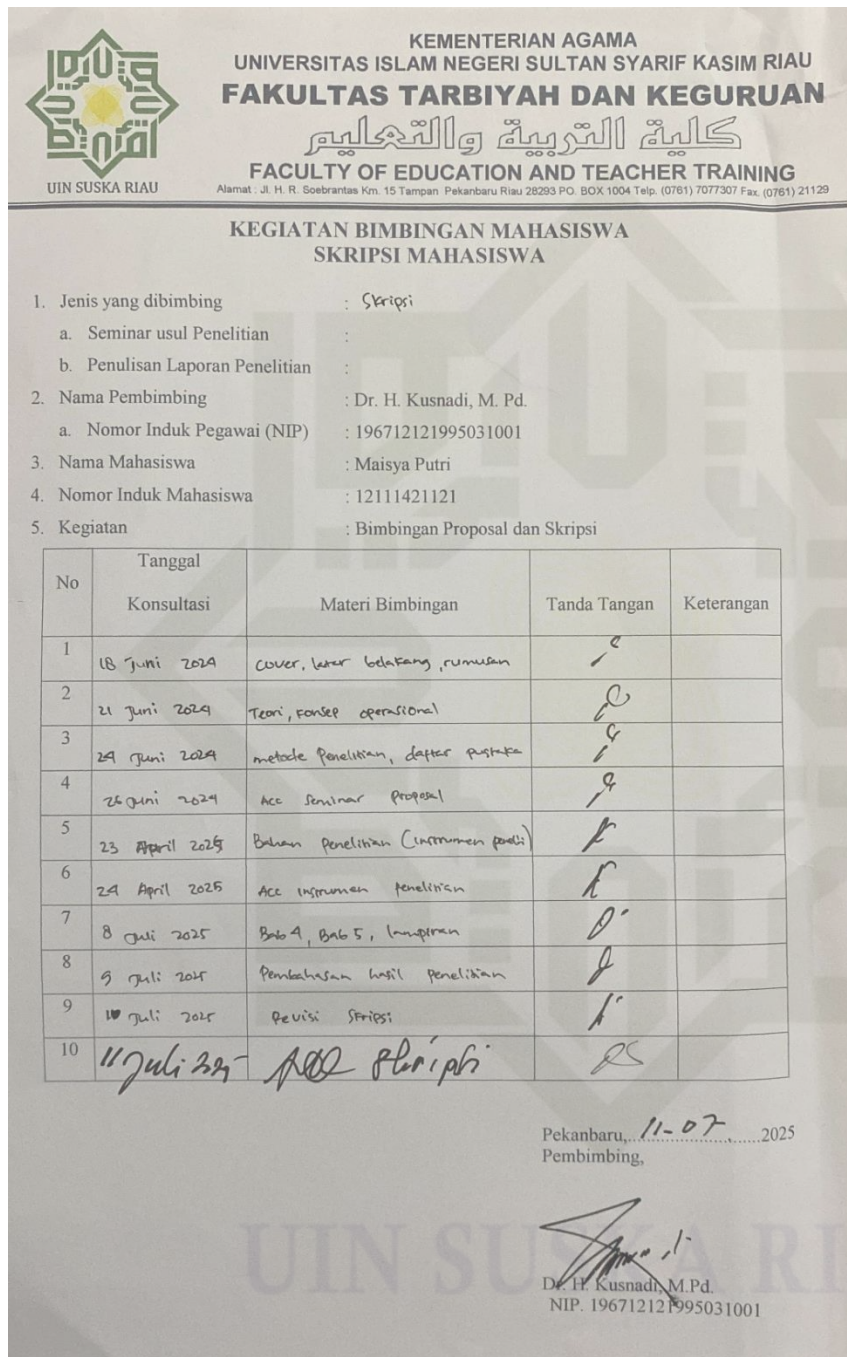 KEMENTERIAN AGAMA
UNIVERSITAS ISLAM NEGERI SULTAN SYARIF KASIM RIAU
FAKULTAS TARBIYAH DAN KEGURUAN
كلية التربية والتعليم
FACULTY OF EDUCATION AND TEACHER TRAINING
UIN SUSKA RIAU
Alamat : Jl. H. R. Soebrantas Km. 15 Tampan Pekanbaru Riau 28293 PO. BOX 1004 Telp. (0761) 7077307 Fax. (0761) 21129
KEGIATAN BIMBINGAN MAHASISWA
SKRIPSI MAHASISWA
1. Jenis yang dibimbing : Skripsi
a. Seminar usul Penelitian :
b. Penulisan Laporan Penelitian :
2. Nama Pembimbing : Dr. H. Kusnadi, M. Pd.
a. Nomor Induk Pegawai (NIP) : 196712121995031001
3. Nama Mahasiswa : Maisya Putri
4. Nomor Induk Mahasiswa : 12111421121
5. Kegiatan : Bimbingan Proposal dan Skripsi
No Tanggal Konsultasi Materi Bimbingan Tanda Tangan Keterangan
1 18 Juni 2024 cover, latar belakang, rumusan
2 21 Juni 2024 Teori, konsep operasional
3 24 Juni 2024 metode Penelitian, daftar pustaka
4 26 Juni 2024 Acc Seminar Proposal
5 23 April 2025 Bahan Penelitian (instrumen
6 24 April 2025 Acc instrumen penelitian
7 8 Juli 2025 Bab 4, Bab 5, lampiran
8 9 Juli 2025 Pembahasan hasil penelitian
9 10 Juli 2025 Revisi Skripsi
10 11 Juli Acc Skripsi
Pekanbaru, 11-07 2025
Pembimbing,
UIN SUSKA RI
Dr. H. Kusnadi, M.Pd.
NIP. 196712121995031001